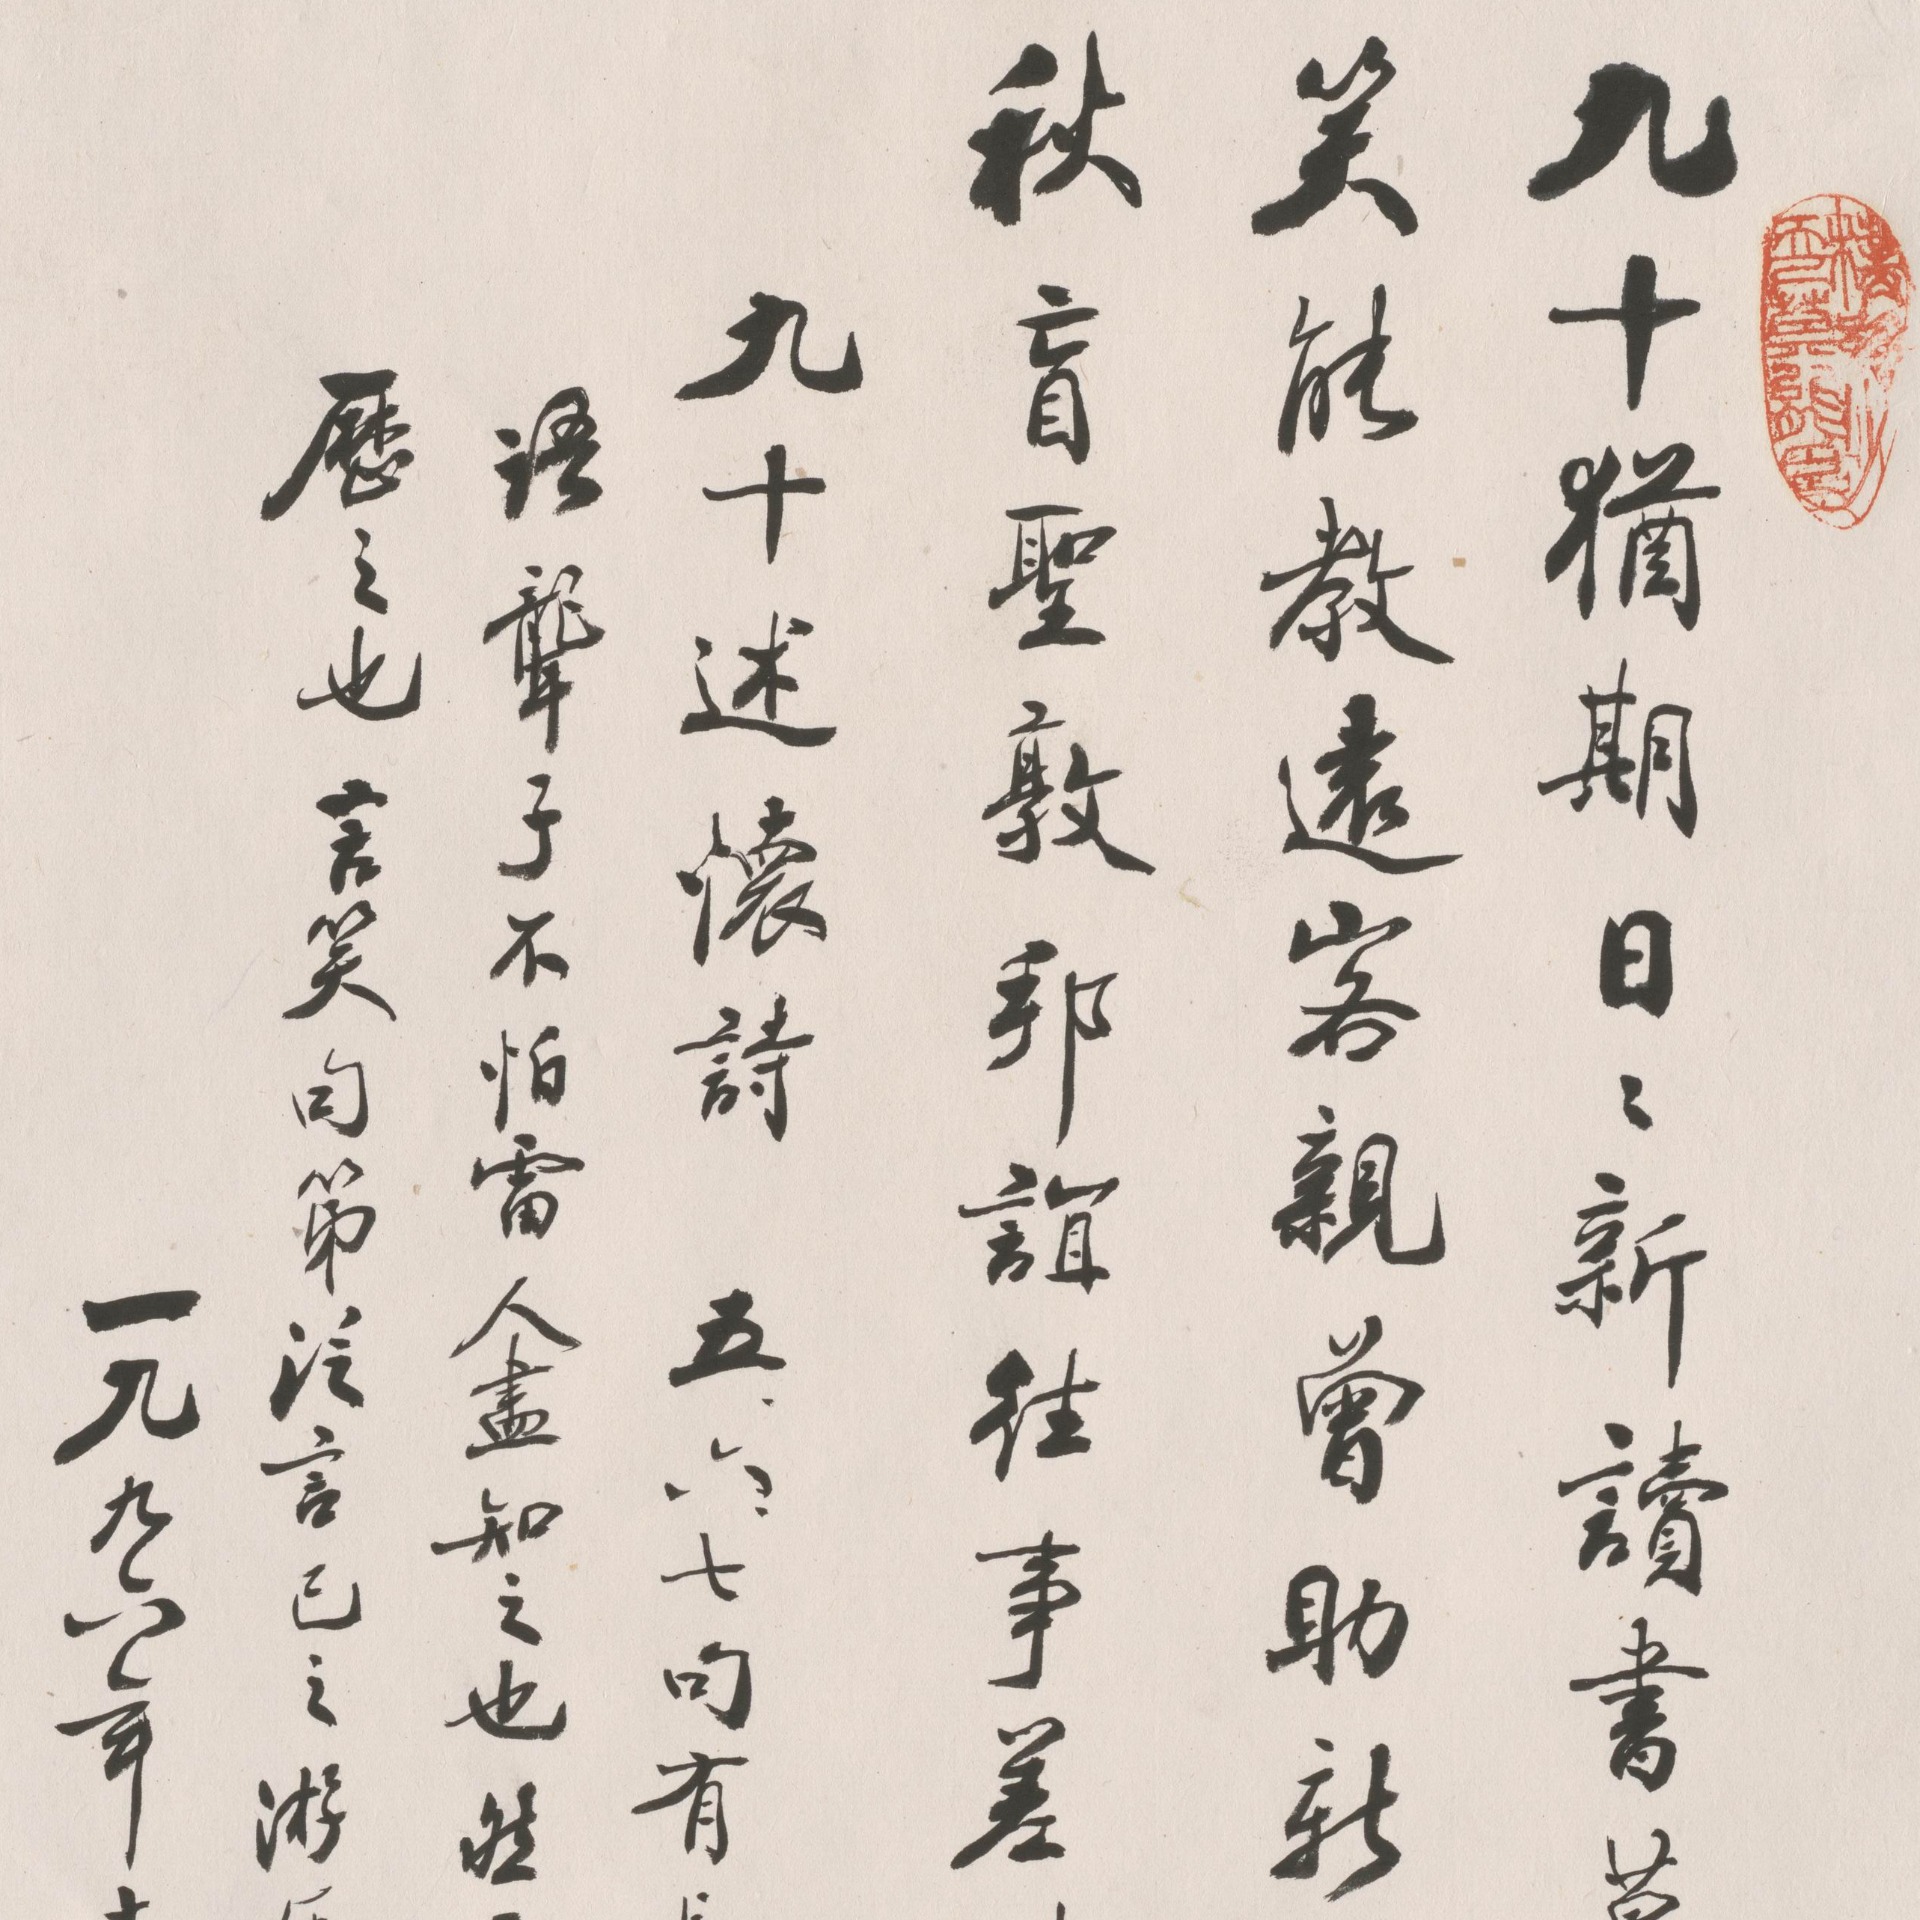 九十猶期日〻新讀書
笑能教遠客親曾助新
秋盲聖敦邦誼往事差
九十述懷詩 五、六、七句有
語聾子不怕雷人盡知之也然
歷之也 言笑句第泛言己之游
一九九六年十